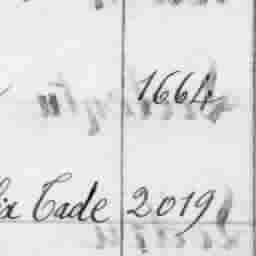 1664
ix Cade 2019